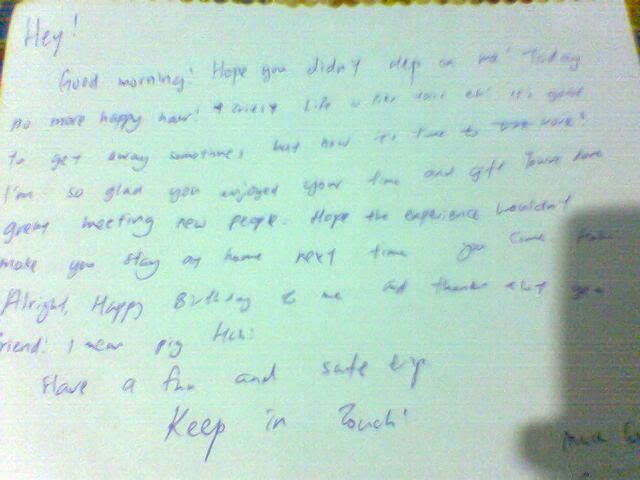 Hey!
Good morning! Hope you didn't on me! Today
no more happy hour! Life is like that eh! it's good
to get away sometimes but now it's time to work!
I'm so glad you enjoyed your time and
great meeting new people. Hope the experience wouldn't
make you stay at home next time you come
Alright, Happy Birthday to me and thanks
friend! I mean pig Hah!
Have a fun and safe trip
Keep in Touch!